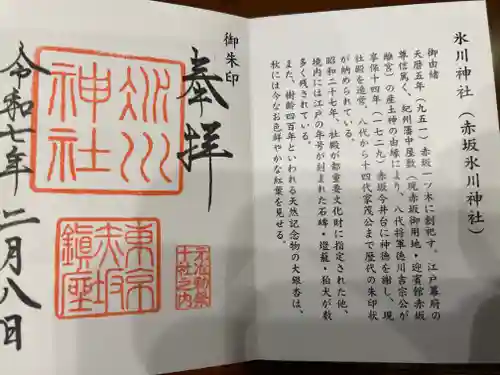 氷川神社（赤坂氷川神社）
御由緒
天暦五年（九五一）赤坂一ツ木に創祀す。江戸幕府の
尊信篤く、紀州藩中屋敷（現赤坂御用地・迎賓館赤坂
離宮）の産土神の由縁により、八代将軍徳川吉宗公が
享保十四年（一七二九）赤坂今井台に神徳を謝し、現
社殿を造営、八代から十四代家茂公まで歴代の朱印状
が納められている。
昭和二十七年、社殿が都重要文化財に指定された他、
境内には江戸の年号が刻まれた石碑・燈籠・狛犬が数
多く残されている。
また、樹齢四百年といわれる天然記念物の大銀杏は、
秋には今なお色鮮やかな紅葉を見せる。
御朱印
奉拝
氷川
神社
東京
赤坂
鎮座
准勅祭
十社之内
令和七年二月八日